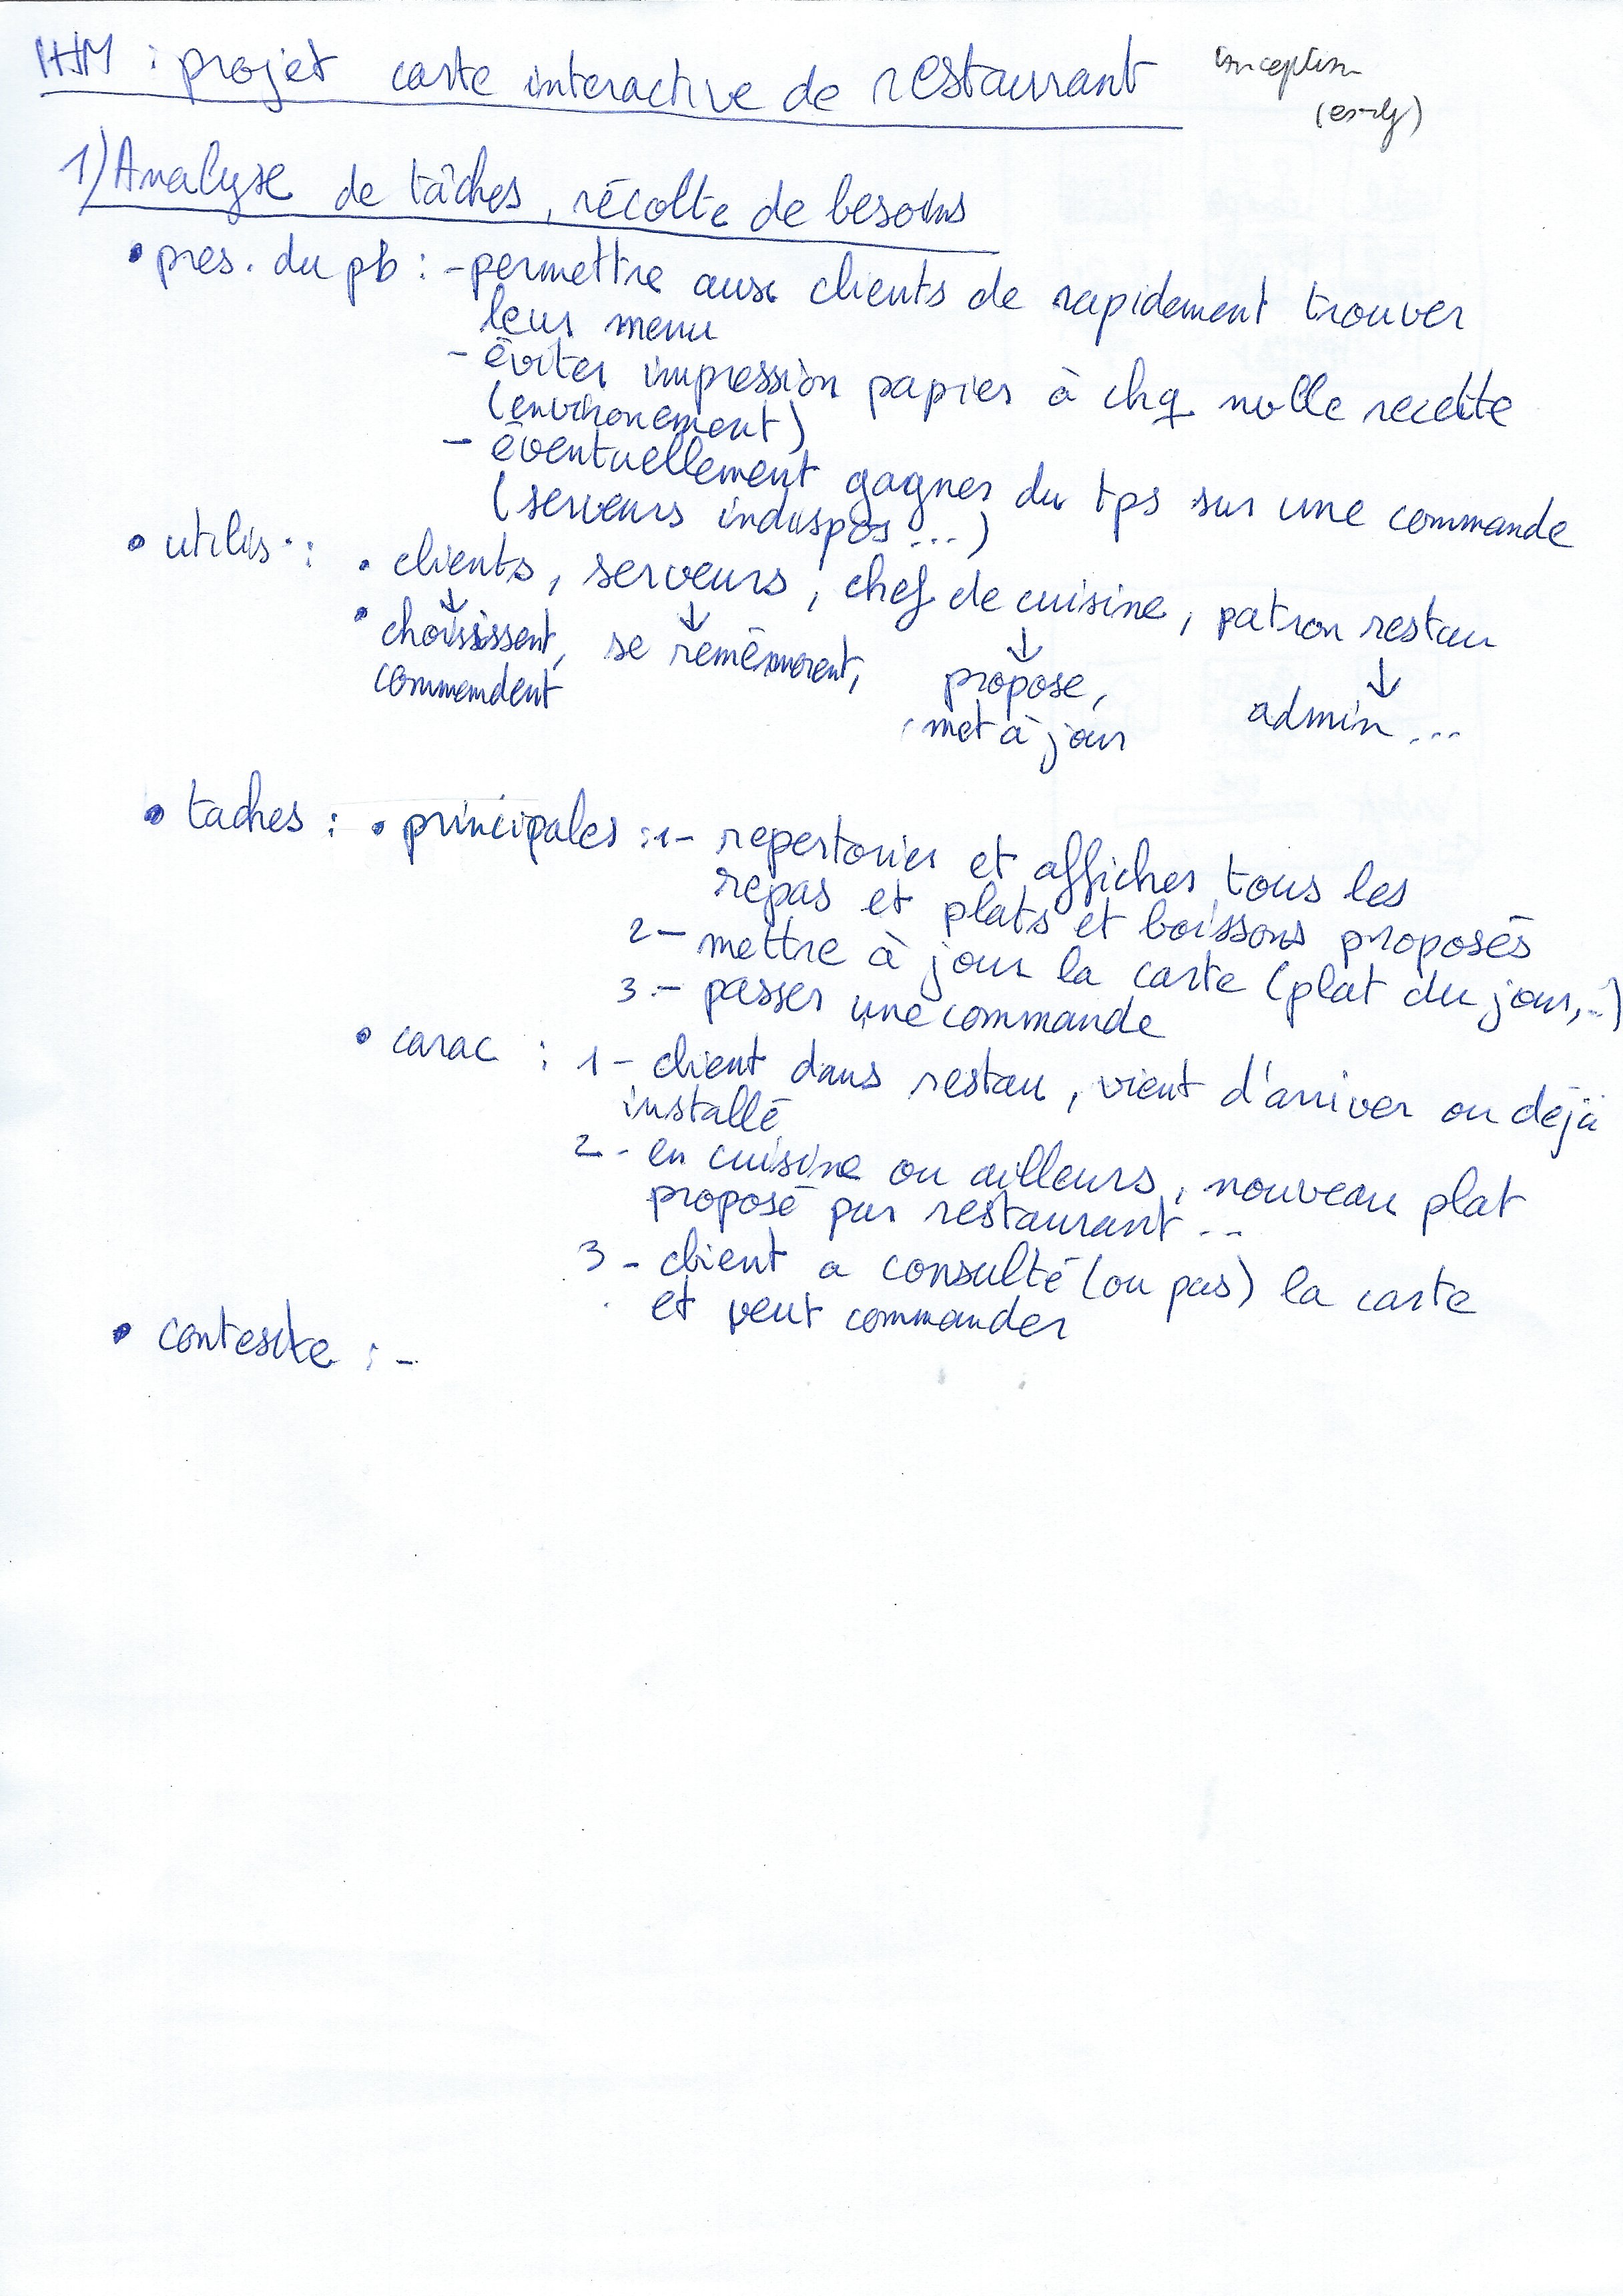 IHM : projet carte interactive de restaurant
1) Analyse de tâches, récolte de besoins
• pres. du pb : - permettre aux clients de rapidement trouver
leur menu
- éviter impression papier à chq nvlle recette
(environement)
- éventuellement gagner du tps sur une commande
(serveurs indispos ...)
• utilis. : • clients, serveurs, chef de cuisine, patron restau
↓ ↓ ↓ ↓
• choisissent, se remémorent, propose, admin ...
commendent met à jour
• taches : • principales : 1- repertorier et afficher tous les
repas et plats et boissons proposés
2- mettre à jour la carte (plat du jour, ..)
3.- passer une commande
• carac : 1- client dans restau, vient d'arriver ou déjà
installé
2- en cuisine ou ailleurs, nouveau plat
proposé par restaurant ...
3- client a consulté (ou pas) la carte
et veut commander
• contexte : -